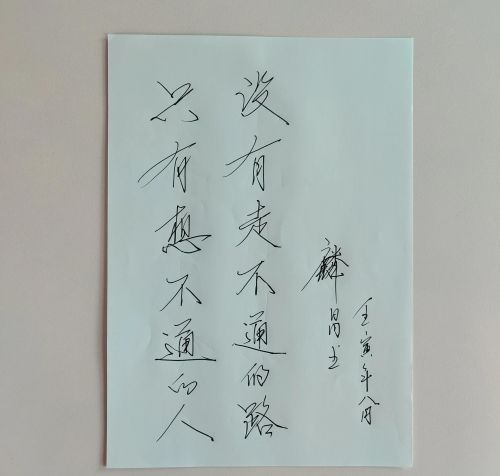 壬寅年八月
麟昌书
没有走不通的路
只有想不通的人